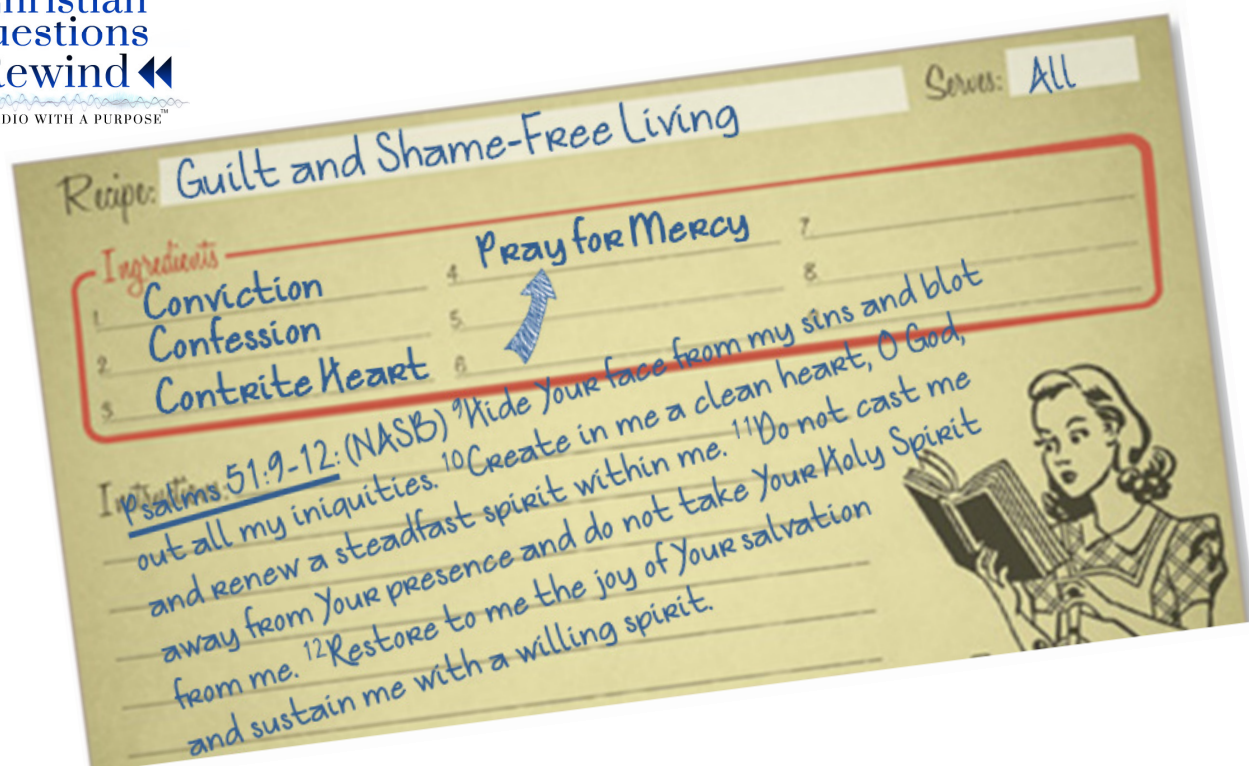 uestions
ewind
DIO WITH A PURPOSE™
Recipe: Guilt and Shame-Free Living
Serves: All
Ingredients
1. Conviction
2. Confession
3. Contrite Heart
4. Pray for Mercy
5.
6
7
8.
Psalms 51:9-12: (NASB) ⁹Hide Your face from my sins and blot
out all my iniquities. ¹⁰Create in me a clean heart, O God,
and renew a steadfast spirit within me. ¹¹Do not cast me
away from Your presence and do not take Your Holy Spirit
from me. ¹²Restore to me the joy of Your salvation
and sustain me with a willing spirit.